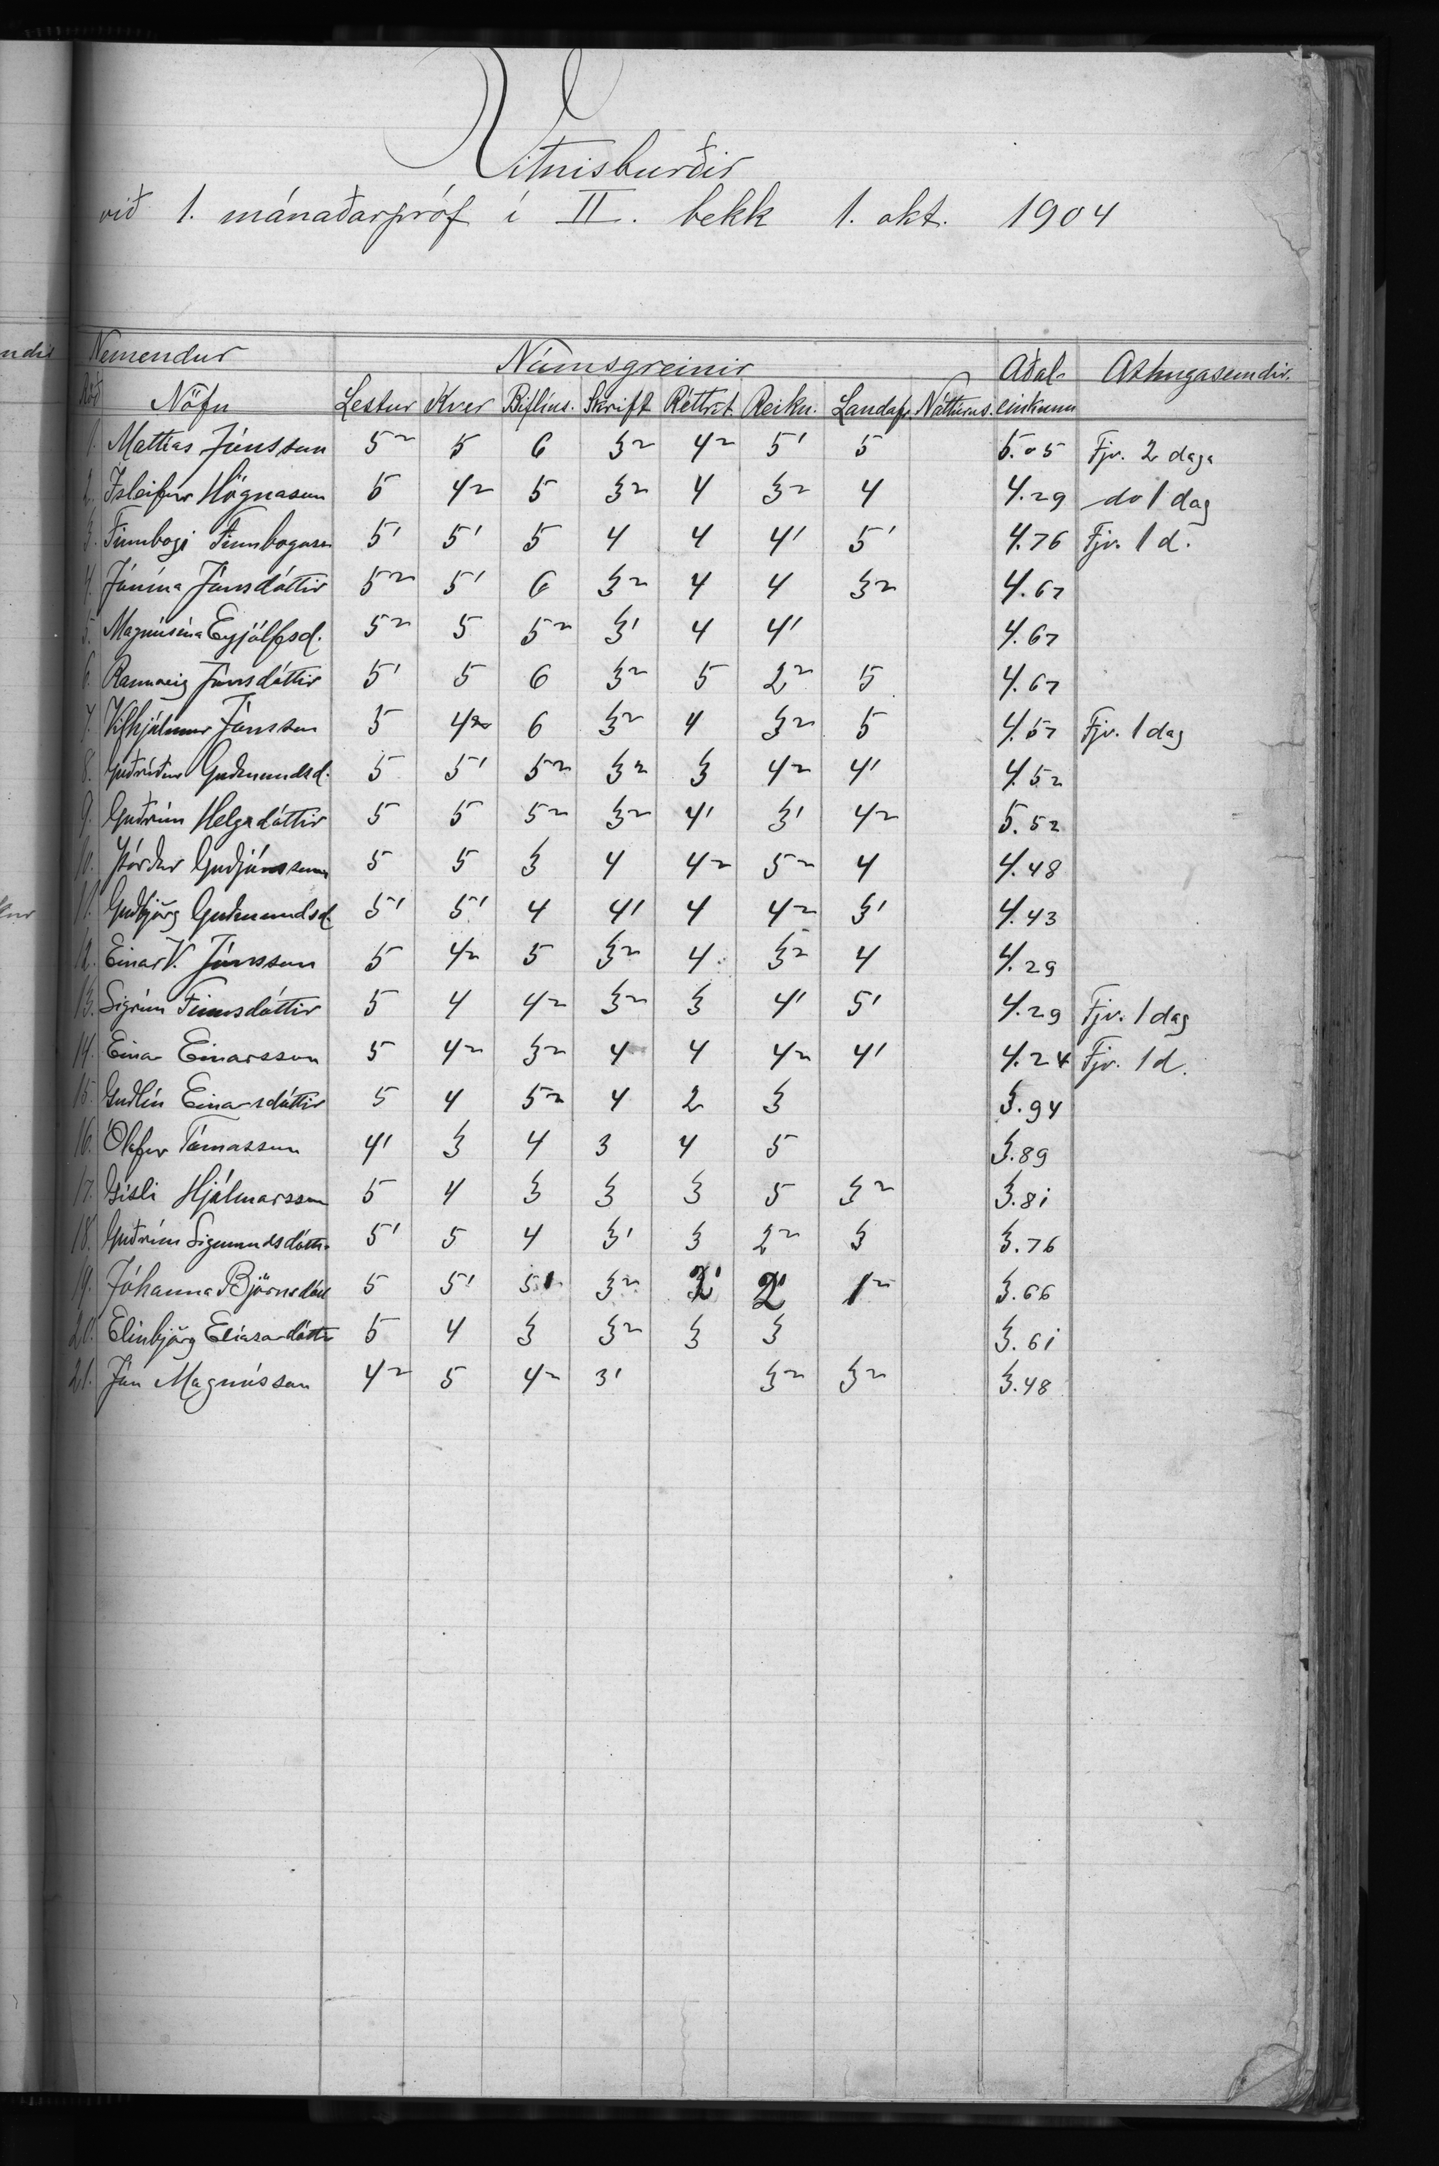 Vitnisburðir
við 1. mánaðarpróf í II. bekk 1. okt. 1904
Nemendur Námsgreinir Aðal- Athugasemdir.
Röð Nöfn Lestur Kver Biflíus. Skrift Réttrit. Reikn. Landafr. Náttúrus. einkunn
1. Mattías Jónsson 5~ 5 6 3~ 4~ 5' 5 5.05 Fjv. 2 daga
2. Ísleifur Högnason 5 4~ 5 3~ 4 3~ 4 4.29 do 1 dag
3. Finnbogi Finnbogason 5' 5' 5 4 4 4' 5' 4.76 Fjv. 1 d.
4. Jónína Jónsdóttir 5~ 5' 6 3~ 4 4 3~ 4.67
5. Magnúsína Eyjólfsd. 5~ 5 5~ 3' 4 4' 4.67
6. Rannveig Jónsdóttir 5' 5 6 3~ 5 2~ 5 4.67
7. Vilhjálmur Jónsson 5 4~ 6 3~ 4 3~ 5 4.57 Fjv. 1 dag
8. Guðríður Guðmundsd. 5 5' 5~ 3~ 3 4~ 4' 4.52
9. Guðrún Helgadóttir 5 5 5~ 3~ 4' 3' 4~ 5.52
10. Þórður Guðjónsson 5 5 3 4 4~ 5~ 4 4.48
11. Guðbjörg Guðmundsd. 5' 5' 4 4' 4 4~ 3' 4.43
12. Einar V. Jónsson 5 4~ 5 3~ 4 3~ 4 4.29
13. Sigrún Finnsdóttir 5 4 4~ 3~ 3 4' 5' 4.29 Fjv. 1 dag
14. Einar Einarsson 5 4~ 3~ 4 4 4~ 4' 4.24 Fjv. 1 d.
15. Guðlín Einarsdóttir 5 4 5~ 4 2 3 3.94
16. Ólafur Tómasson 4' 3 4 3 4 5 3.89
17. Gísli Hjálmarsson 5 4 3 3 3 5 3~ 3.81
18. Guðrún Sigmundsdóttir 5' 5 4 3' 3 2~ 3 3.76
19. Jóhanna Björnsdótt 5 5' 5' 3~ 2' 2' 1~ 3.66
20. Elínbjörg Elíasardóttir 5 4 3 3~ 3 3 3.61
21. Jón Magnússon 4~ 5 4~ 3' 3~ 3~ 3.48